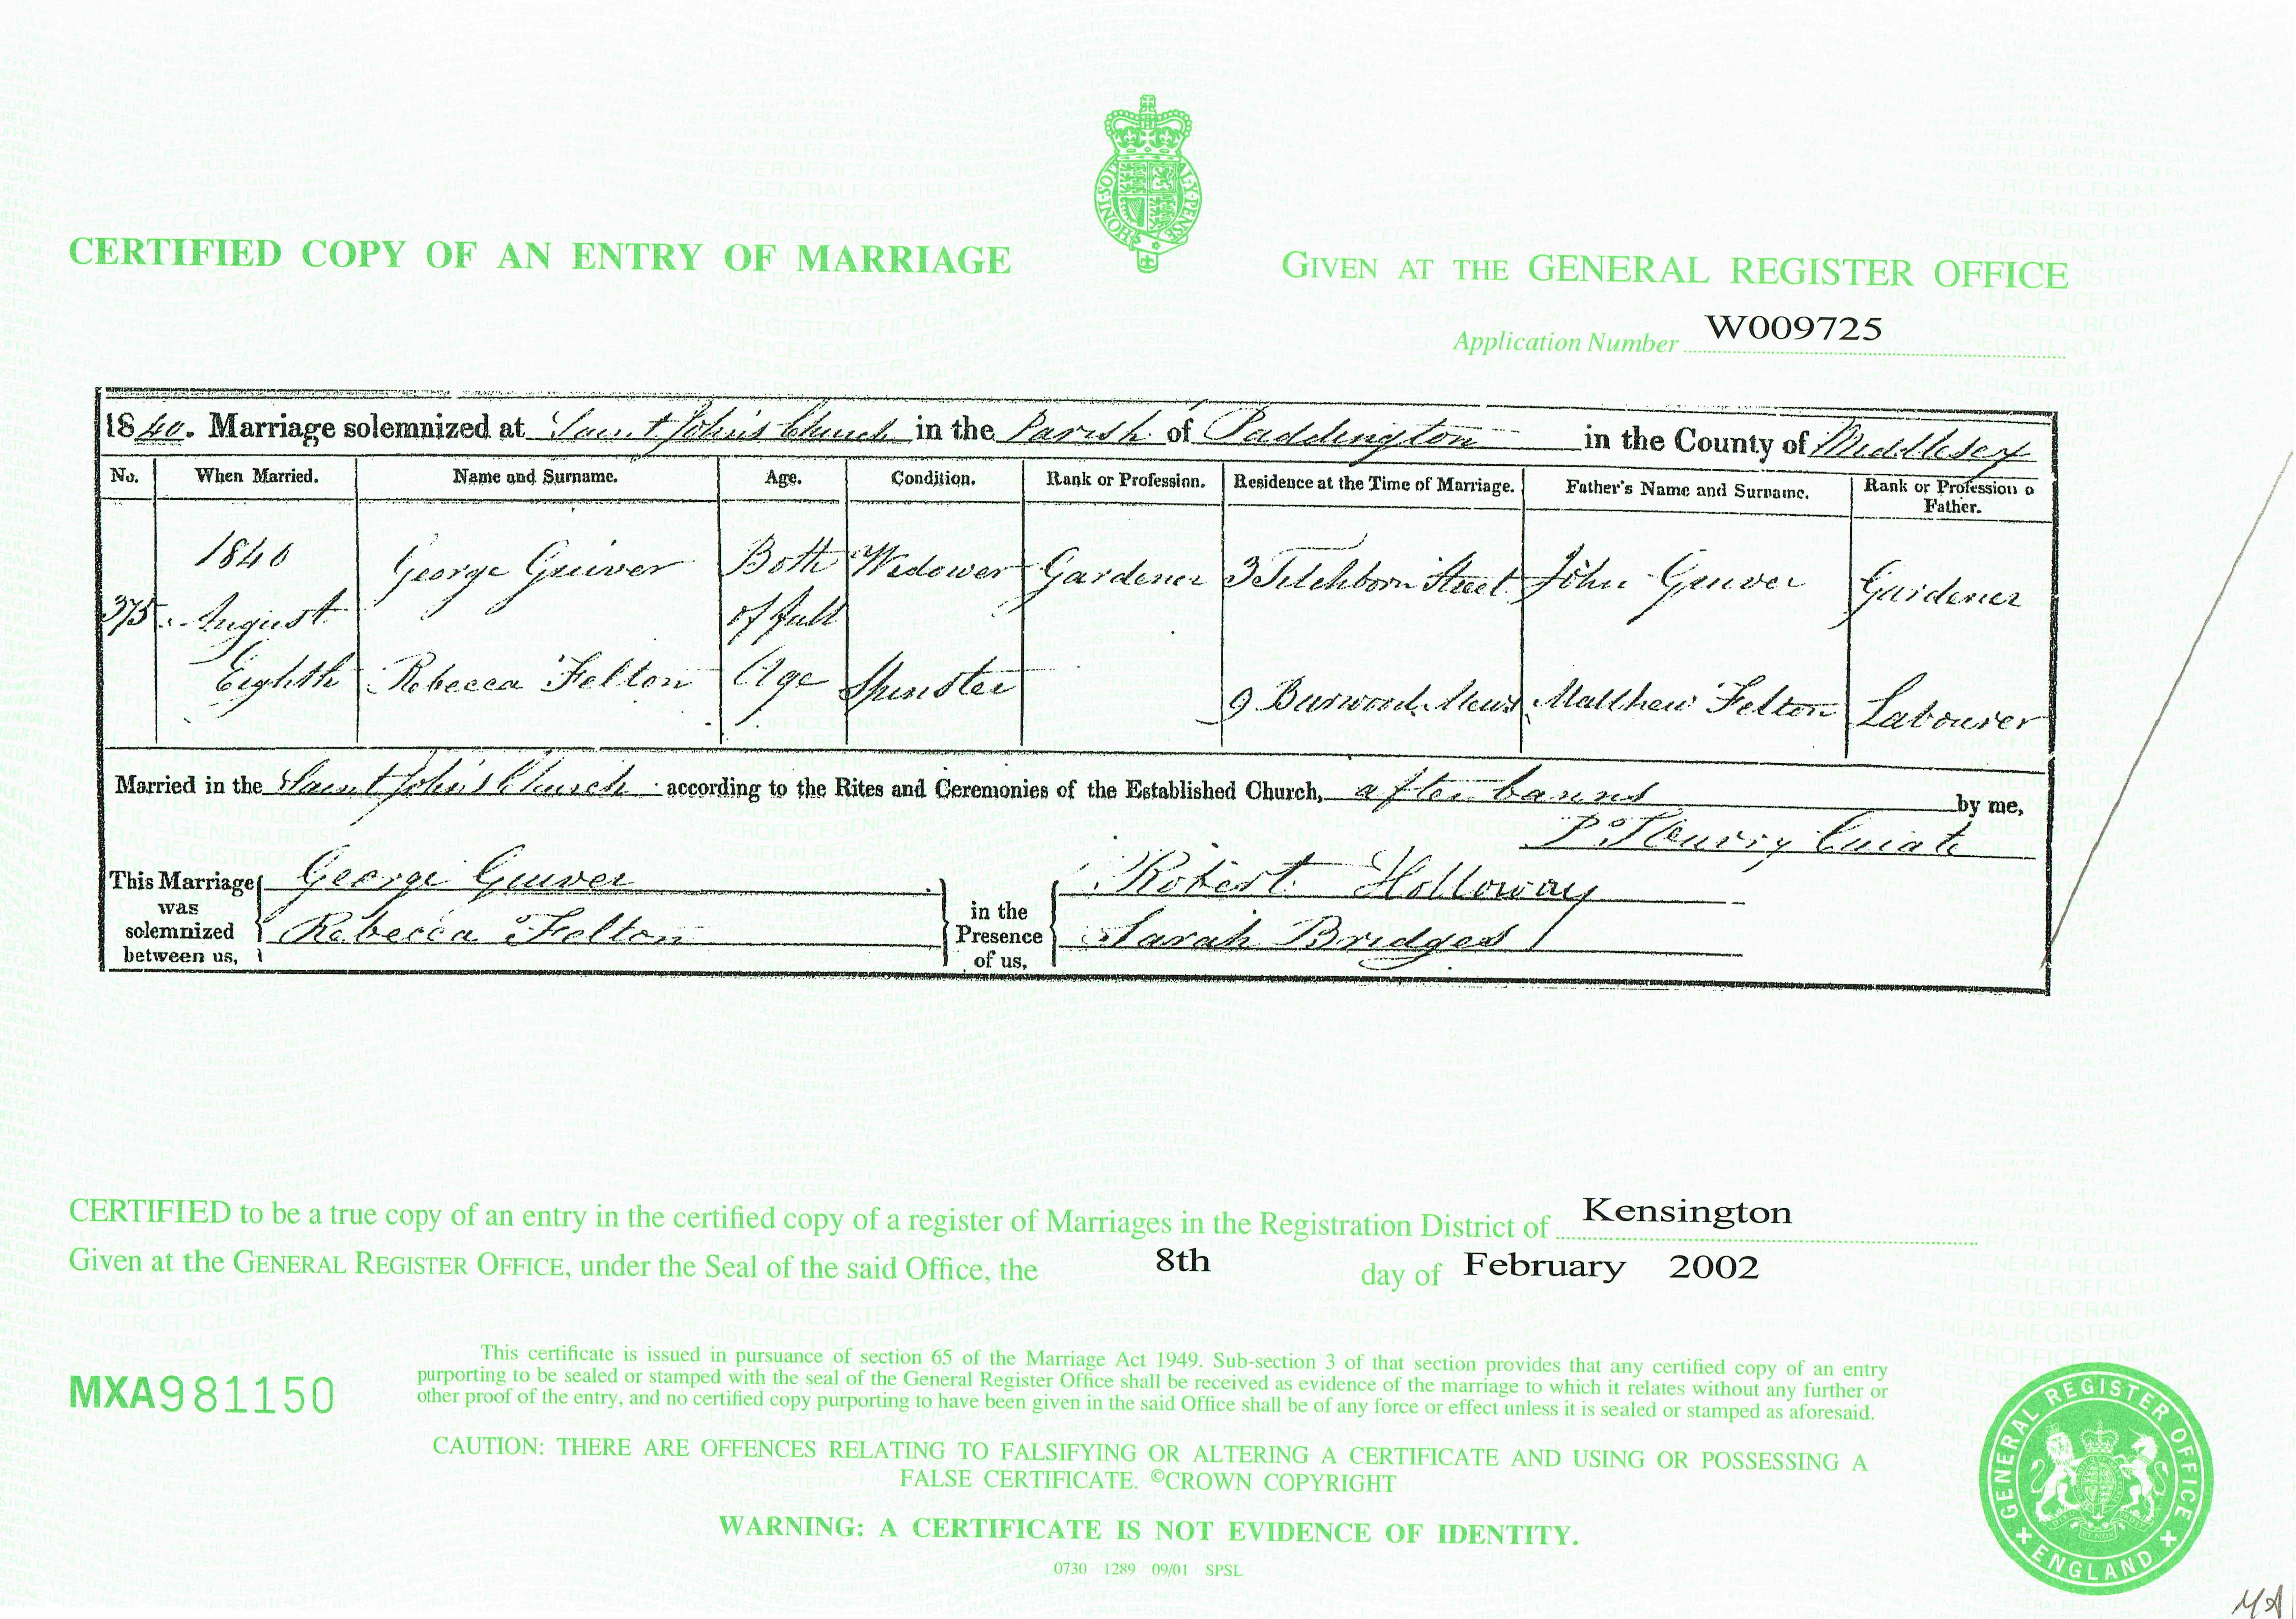 CERTIFIED COPY OF AN ENTRY OF MARRIAGE
HONI·SOIT
Y·PENSE
GIVEN AT THE GENERAL REGISTER OFFICE
Application Number W009725
1840. Marriage solemnized at Saint John's Church in the Parish of Paddington in the County of Middlesex
No. When Married. Name and Surname. Age. Condition. Rank or Profession. Residence at the Time of Marriage. Father's Name and Surname. Rank or Profession o
Father.
1840 George Guiver Both Widower Gardener 3 Titchborn Street John Guiver Gardener
375 August of full
Eighth Rebecca Felton Age Spinster 9 Burwood Mews Matthew Felton Labourer
Married in the Saint John's Church according to the Rites and Ceremonies of the Established Church, after banns by me,
Curate
This Marriage was solemnized between us, George Guiver
Rebecca Felton
in the Presence of us, Robert Holloway
Sarah Bridges
CERTIFIED to be a true copy of an entry in the certified copy of a register of Marriages in the Registration District of Kensington
Given at the GENERAL REGISTER OFFICE, under the Seal of the said Office, the 8th day of February 2002
MXA981150
This certificate is issued in pursuance of section 65 of the Marriage Act 1949. Sub-section 3 of that section provides that any certified copy of an entry
purporting to be sealed or stamped with the seal of the General Register Office shall be received as evidence of the marriage to which it relates without any further or
other proof of the entry, and no certified copy purporting to have been given in the said Office shall be of any force or effect unless it is sealed or stamped as aforesaid.
CAUTION: THERE ARE OFFENCES RELATING TO FALSIFYING OR ALTERING A CERTIFICATE AND USING OR POSSESSING A
FALSE CERTIFICATE. ©CROWN COPYRIGHT
WARNING: A CERTIFICATE IS NOT EVIDENCE OF IDENTITY.
0730 1289 09/01 SPSL
GENERAL REGISTER OFFICE
ENGLAND